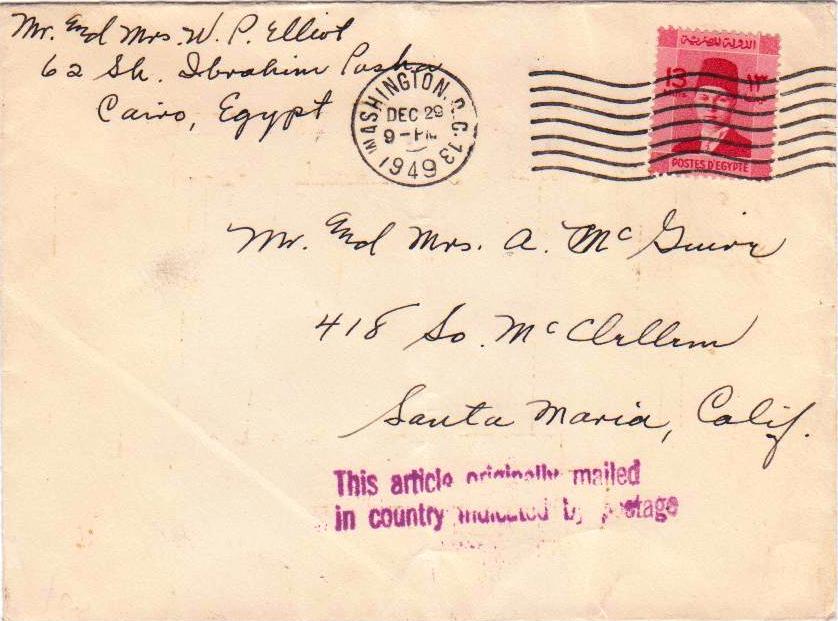 Mr. and Mrs. W. P. Elliot
62 Sh. Ibrahim Pasha
Cairo, Egypt
WASHINGTON, D.C. 13
DEC 29
9-PM
1949
الدولة المصرية
13 ١٣
POSTES D'EGYPTE
Mr. and Mrs. A. McGuire
418 So. McClellem
Santa Maria, Calif.
This article originally mailed
in country indicated by postage